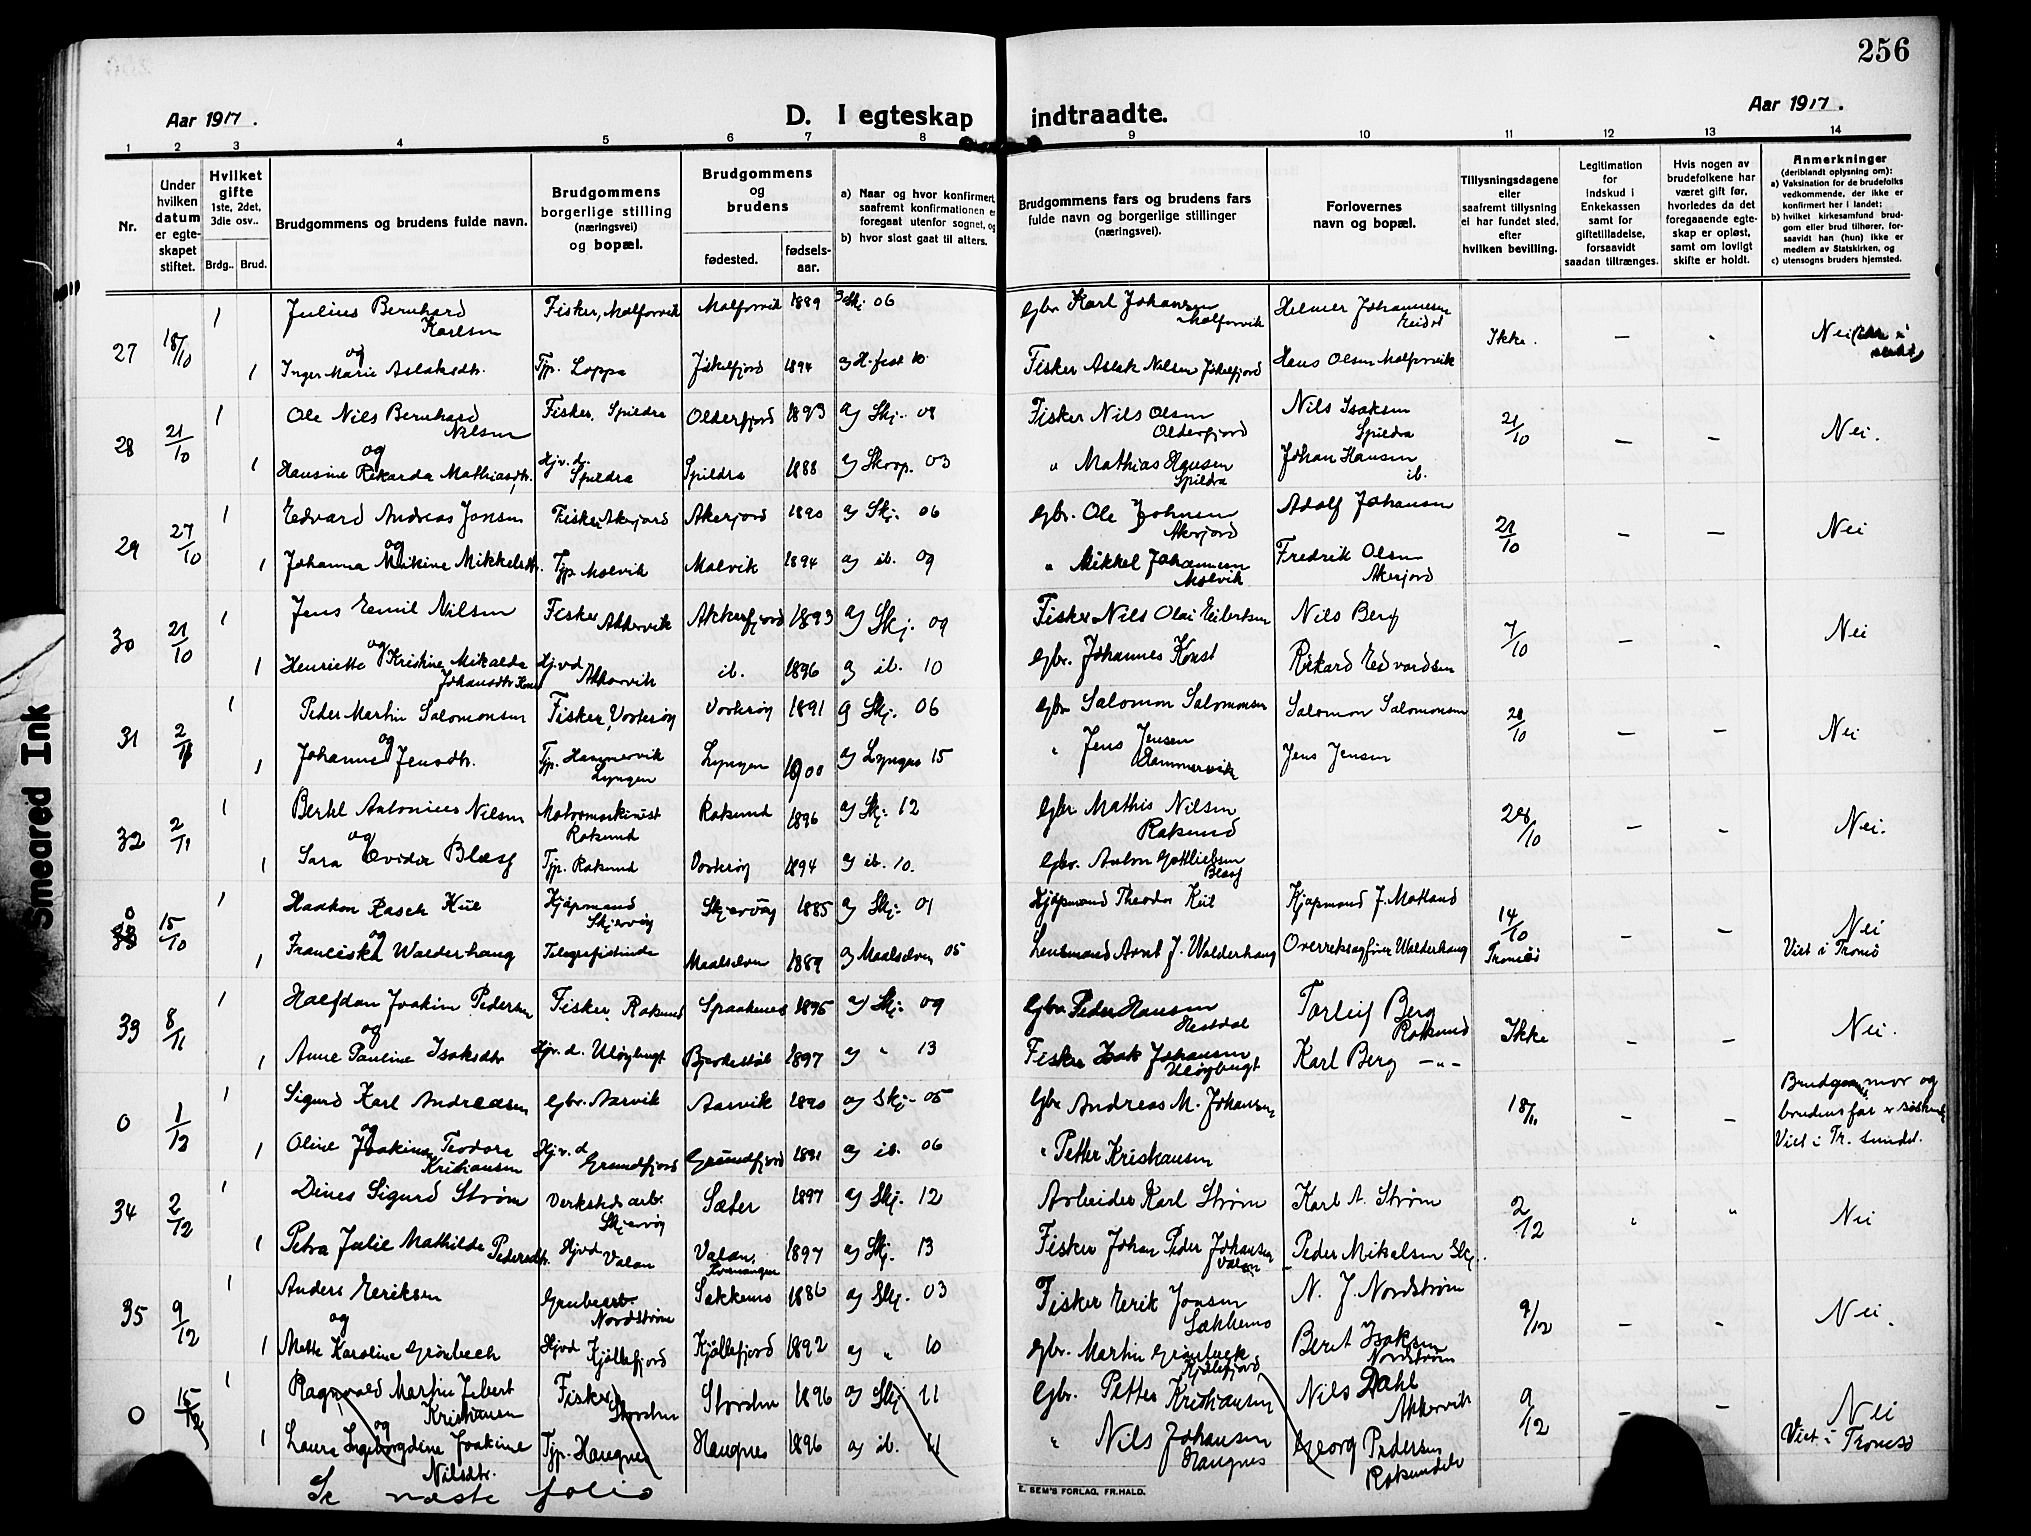 256
Aar 1917.
D. I egteskap indtraadte.
Aar 1917.
1 2 3 4 5 6 7 8 9 10 11 12 13 14
Nr.
Under hvilken datum er egteskapet stiftet.
Hvilket gifte 1ste, 2det, 3die osv..
Brdg.. Brud.
Brudgommens og brudens fulde navn.
Brudgommens borgerlige stilling (næringsvei) og bopæl.
Brudgommens og brudens
fødested. fødsels-aar.
a) Naar og hvor konfirmert, saafremt konfirmationen er foregaat utenfor sognet, og
b) hvor sidst gaat til alters.
Brudgommens fars og brudens fars fulde navn og borgerlige stillinger (næringsvei).
Forlovernes navn og bopæl.
Tillysningsdagene eller saafremt tillysning ei har fundet sted, efter hvilken bevilling.
Legitimation for indskud i Enkekassen samt for giftetilladelse, forsaavidt saadan tiltrænges.
Hvis nogen av brudefolkene har været gift før, hvorledes da det foregaaende egteskap er opløst, samt om lovligt skifte er holdt.
Anmerkninger (deriblandt oplysning om):
a) Vaksination for de brudefolks vedkommende, der ikke er konfirmert her i landet;
b) hvilket kirkesamfund brudgom eller brud tilhører, forsaavidt han (hun) ikke er medlem av Statskirken, og
c) utensogns bruders hjemsted.
27 18/10 1 Julius Bernhard Karlsen Fisker, Malforvik Malforvik 1889 Skj. 06 Gbr Karl Johansen Malforvik Helmer Johannesen Ikke. — Nei
og
1 Inger Marie Aslaksdtr. Tjp. Loppa Jökelfjord 1894 H.fest 10 Fisker Aslak Nilsen Jökelfjord Hans Olsen Malforvik
28 21/10 1 Ole Nils Bernhard Nilsen Fisker, Spildra Olderfjord 1893 a) Skj. 08 Fisker Nils Olsen Olderfjord Nils Isaksen Spildra 21/10 — — Nei.
og
1 Hansine Rikarda Mathiasdtr. Hjv. d. Spildra Spildra 1888 a) Skorp. 03 " Mathias Hansen Spildra Johan Hansen ib.
29 27/10 1 Edvard Andreas Jonsen Fisker Akerjord Akerjord 1890 a) Skj. 06 Gbr. Ole Johnsen Akerjord Adolf Johansen 21/10 — — Nei
og
1 Johanna Mikkelsdtr. Tjp Malvik Malvik 1894 a) ib. 09 " Mikkel Johannesen Malvik Fredrik Olsen Akerjord
30 21/10 1 Jens Emil Nilsen Fisker Akkervik Akkerfjord 1893 a) Skj. 09 Fisker Nils Olai Eilertsen Nils Berg 7/10 — Nei
og
1 Henriette Kristine Mikalda Johansdtr Hjvd Akkarvik ib. 1896 a) ib. 10 Gbr. Johannes Konst Rikard Edvardsen
31 2/11 1 Peder Martin Salomonsen Fisker, Vorterøy Vorterøy 1891 a) Skj. 06 Gbr Salomon Salomonsen Salomon Salomonsen 28/10 — — Nei
og
1 Johanne Jensdtr. Tjp. Hammervik Lyngen Lyngen 1900 a) Lyngen 15 " Jens Jensen Hammervik Jens Jensen
32 2/11 1 Bertel Antonius Nilsen Motormaskinist Rotsund Rotsund 1896 a) Skj. 12 Gbr Mathis Nilsen Rotsund 28/10 — — Nei.
og
1 Sara Ovidia Blæsj Tjp. Rotsund Vorterøy 1894 a) ib. 10. Gbr. Anton Gottliebsen Blæsj
0 15/10 1 Haakon Rasch Kiil Kjöpmand Skjervöy Skjervöy 1885 a) Skj. 01 Kjöpmand Theodor Kiil Kjöpmand J. Matland 14/10 Tromsö — — Nei
og
1 Franciska Walderhaug Telegrafistinde Maalselven 1889 a) Maalselven 05 Lensmand Arnt J. Walderhaug Overretssagfører Walderhaug Viet i Tromsö
33 8/11 1 Halfdan Joakim Pedersen Fisker, Rotsund Spaakenes 1895 a) Skj. 09 Gbr Peder Hansen Torleif Berg Rotsund Ikke — — Nei.
og
1 Anne Pauline Isaksdtr Hjv. d. Uløybugt 1897 a) " 13 Fisker Isak Johansen Uløybugt Karl Berg —"—
0 1/12 1 Sigurd Karl Andreasen Gbr. Aarvik Aarvik 1890 a) Skj. 05 Gbr Andreas M. Johansen 18/11 — — Brudgom. mor og brudens far er søsken
og
1 Oline Joakine Teodora Kristiansen Hjv. d Grundfjord Grundfjord 1891 a) ib. 06 " Petter Kristiansen Viet i Tr. sundet.
34 2/12 1 Dines Sigurd Strøm Verksted arb. Skjervöy Sæter 1897 a) Skj. 12 Arbeider Karl Strøm Karl A. Strøm 2/12 " " Nei
1 Petra Julie Mathilde Pedersdtr. Hjvd Valan Valan, Kvænangen 1897 a) Skj. 13 Fisker Johan Peder Johansen Valan Peder Mikalsen Skj.
35 9/12 1 Anders Eriksen Grubearb. Nordstrøm Søkkemo 1886 a) Skj. 03 Fisker Eerik Jonsen N. J. Nordstrøm 9/12 — — Nei.
og
1 Mette Karoline Grönbech Hjvd Kjöllefjord Kjöllefjord 1892 a) " 10 Gbr. Martin Grönbeck Kjöllefjord Berit Isaksen Nordstrøm
0 15/12 1 Ragnvald Martin Jebert Kristiansen Fisker Storsten Storsten 1896 a) Skj 11 Gbr. Petter Kristiansen Nils Dahl Akkervik 9/12 — — Nei
og
1 Laura Ingeborgdine Joakine Nilsdtr. Tjp. Haugnes Haugnes 1896 a) ib. 11 " Nils Johansen Haugnes Georg Pedersen Viet i Tromsö
Se næste folio
E. SEM'S FORLAG, FR.HALD.
Smeared Ink